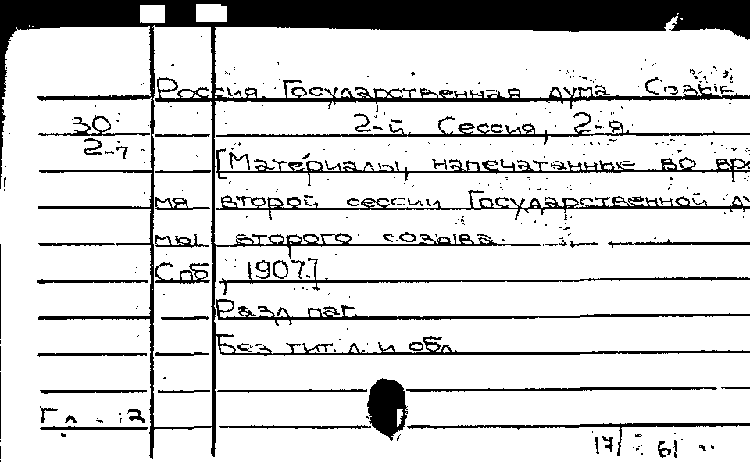 Россия. Государственная дума. Созыв
30 2-й. Сессия, 2-я.
2-7 [Материалы, напечатанные во вре
мя второй сессии Государственной ду
мы второго созыва.
Спб, 1907].
Разд. паг.
Без тит. л. и обл.
17/ 61